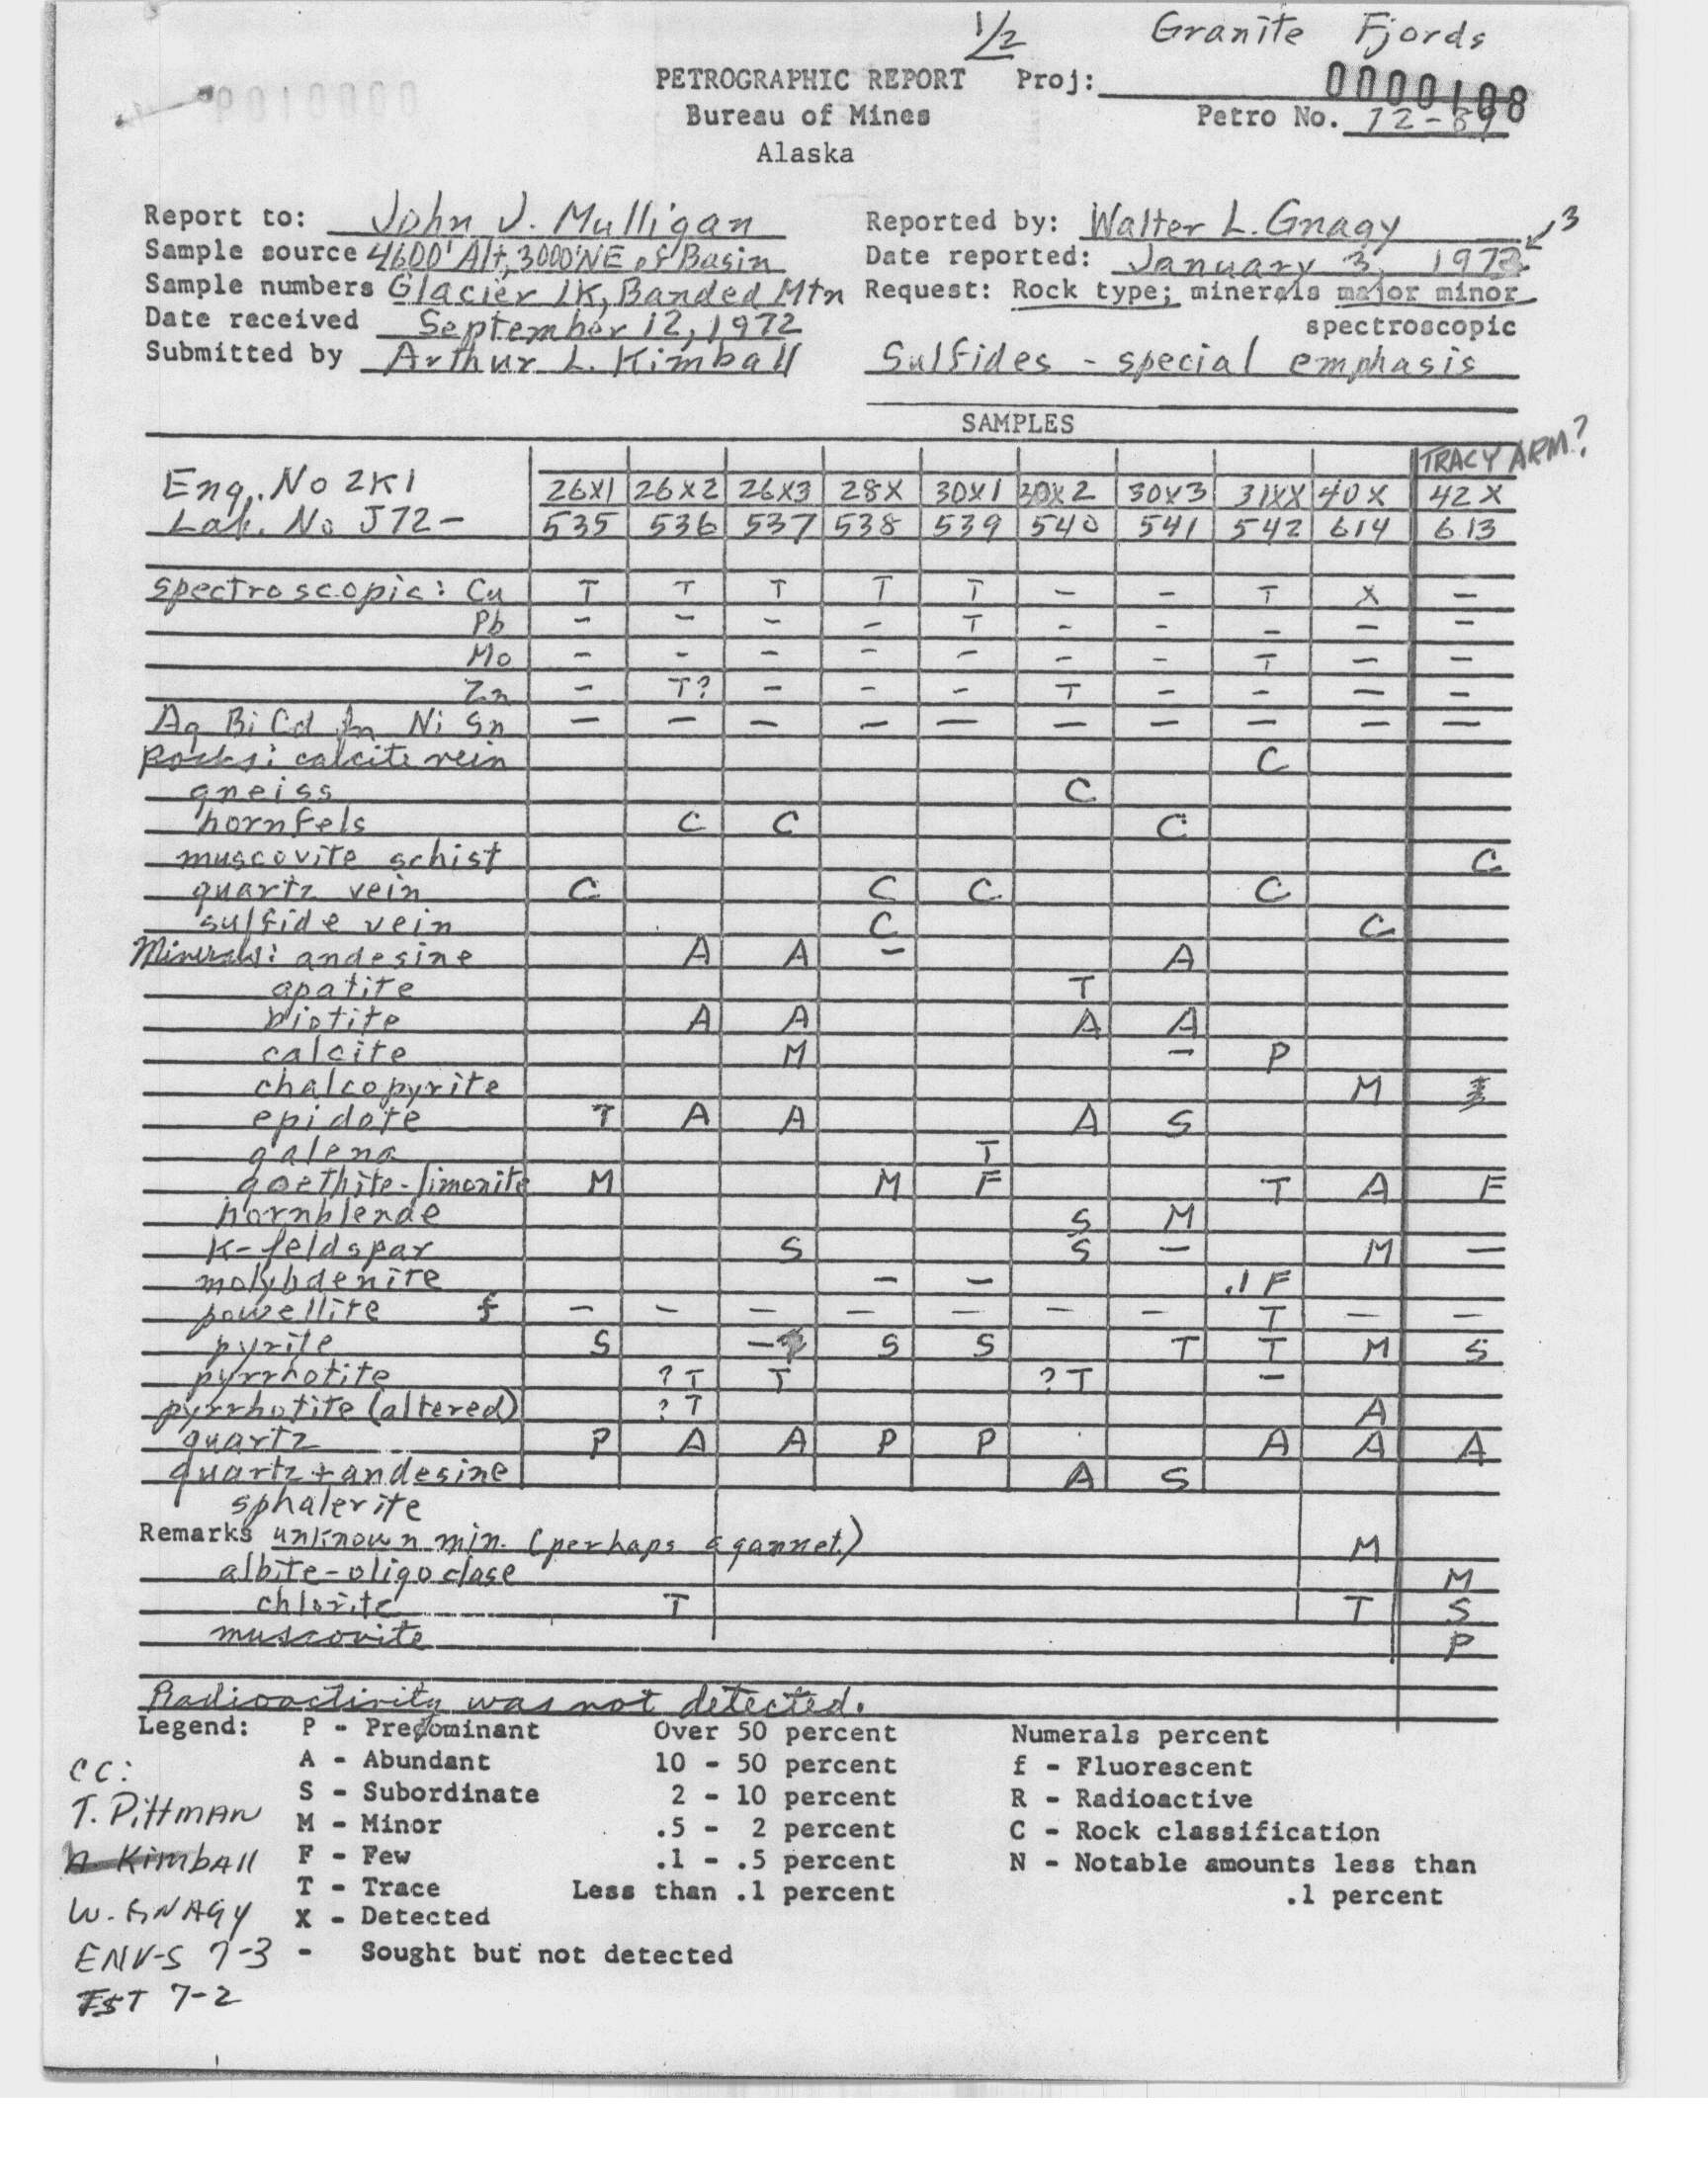 1/2 Granite Fjords
PETROGRAPHIC REPORT Proj: 0000108
Bureau of Mines Petro No. 72-
Alaska
Report to: John J. Mulligan Reported by: Walter L. Gnagy 3
Sample source 4600' Alt, 3000' NE of Basin Date reported: January 3, 197
Sample numbers Glacier lk, Banded Mtn Request: Rock type; minerals major minor
Date received September 12, 1972 spectroscopic
Submitted by Arthur L. Kimball Sulfides - special emphasis
SAMPLES
TRACY ARM?
Eng. No 2K1 26X1 26X2 26X3 28X 30X1 30X2 30X3 31XX 40X 42X
Lab. No J72- 535 536 537 538 539 540 541 542 614 613
spectroscopic: Cu T T T T T - - T X -
Pb - - - - T - - - - -
Mo - - - - - - - T - -
Zn - T? - - - T - - - -
Ag Bi Cd Ni Sn - - - - - - - - - -
Rocks: calcite vein C
gneiss C
hornfels C C C
muscovite schist C
quartz vein C C C C
sulfide vein C C
Minerals: andesine A A - A
apatite T
biotite A A A A
calcite M - P
chalcopyrite M
epidote T A A A S
galena T
goethite-limonite M M F T A F
hornblende S M
K-feldspar S S - M -
molybdenite - - .1F
powellite f - - - - - - - T - -
pyrite S - S S T T M S
pyrrhotite ?T T ?T -
pyrrhotite (altered) ?T A
quartz P A A P P A A A
quartz + andesine A S
sphalerite
Remarks unknown min. (perhaps a garnet.) M
albite-oligoclase M
chlorite T T S
muscovite P
Radioactivity was not detected.
Legend: P - Predominant Over 50 percent Numerals percent
A - Abundant 10 - 50 percent f - Fluorescent
S - Subordinate 2 - 10 percent R - Radioactive
M - Minor .5 - 2 percent C - Rock classification
F - Few .1 - .5 percent N - Notable amounts less than
T - Trace Less than .1 percent .1 percent
X - Detected
- Sought but not detected
cc:
T. Pittman
A. Kimball
W. GNAGY
ENV-S 7-3
EST 7-2